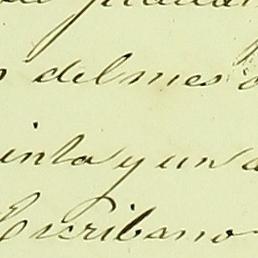 del mes
inta y un
Escribano